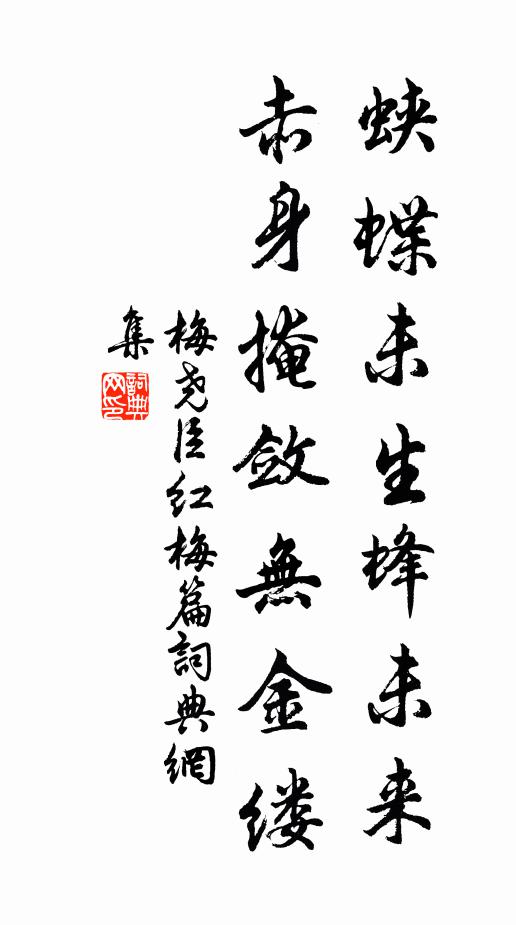 蛱蝶未生蜂未来
赤身掩敛無金缕
梅尧臣红梅篇詞典網
集
詞典
网印